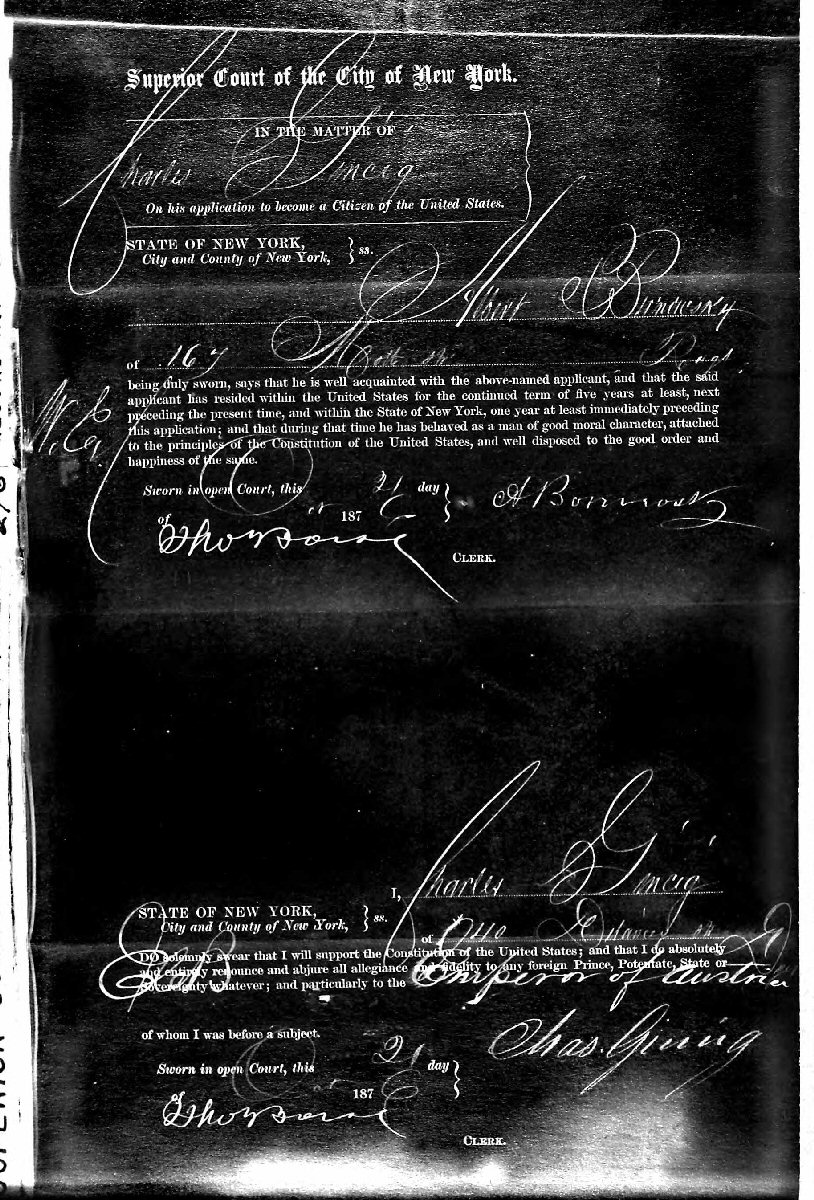 Superior Court of the City of New York.
IN THE MATTER OF
Charles
On his application to become a Citizen of the United States.
STATE OF NEW YORK,
City and County of New York, } ss.
Albert
of 167
being duly sworn, says that he is well acquainted with the above-named applicant, and that the said
applicant has resided within the United States for the continued term of five years at least, next
preceding the present time, and within the State of New York, one year at least immediately preceding
this application; and that during that time he has behaved as a man of good moral character, attached
to the principles of the Constitution of the United States, and well disposed to the good order and
happiness of the same.
Sworn in open Court, this 21 day
of 187
CLERK.
I, Charles
STATE OF NEW YORK,
City and County of New York, } ss.
of
DO solemnly swear that I will support the Constitution of the United States; and that I do absolutely
and entirely renounce and abjure all allegiance and fidelity to any foreign Prince, Potentate, State or
Sovereignty whatever; and particularly to the Emperor of Austria
of whom I was before a subject.
Chas.
Sworn in open Court, this 21 day
of 187
CLERK.